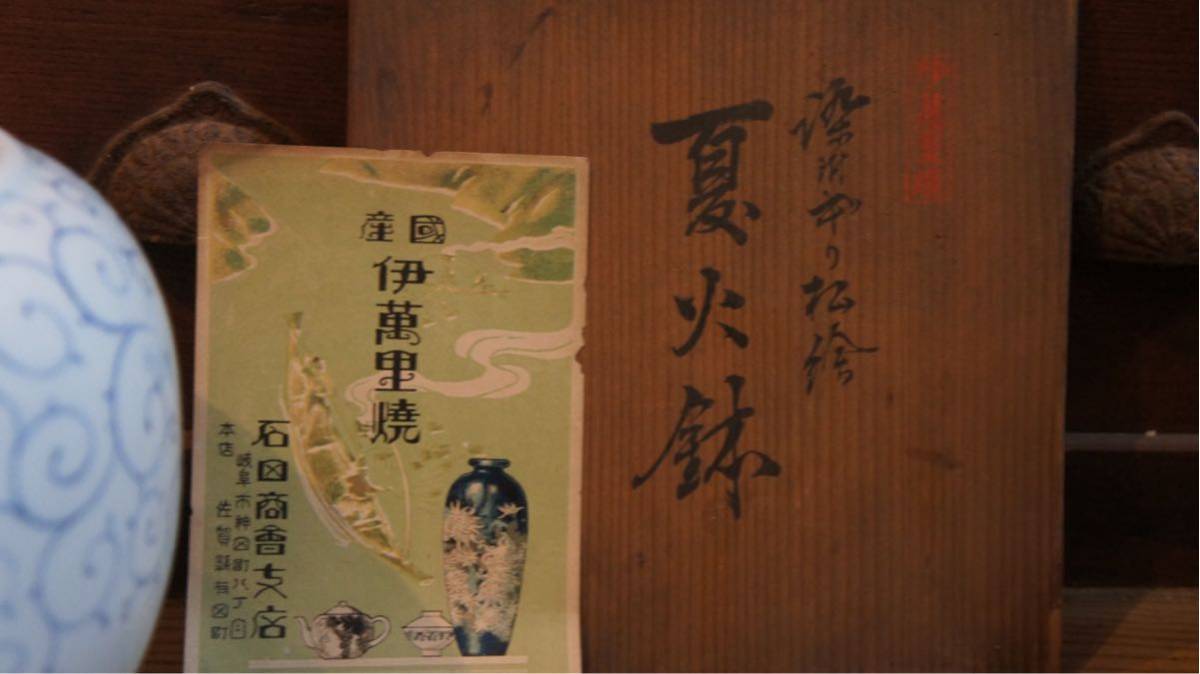 國産
伊萬里燒
石田商會支店
岐阜市神田町八丁目
本店 佐賀縣有田町
夏火鉢
松絵